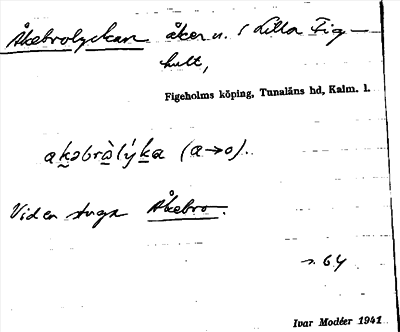 Åkebrolyckan åker n. i Lilla Fig-
hult,
Figeholms köping, Tunaläns hd, Kalm. l.
ak̲əbrà̲lýk̲a (a→o).
Vid en stuga Åkebro.
s. 64
Ivar Modéer 1941